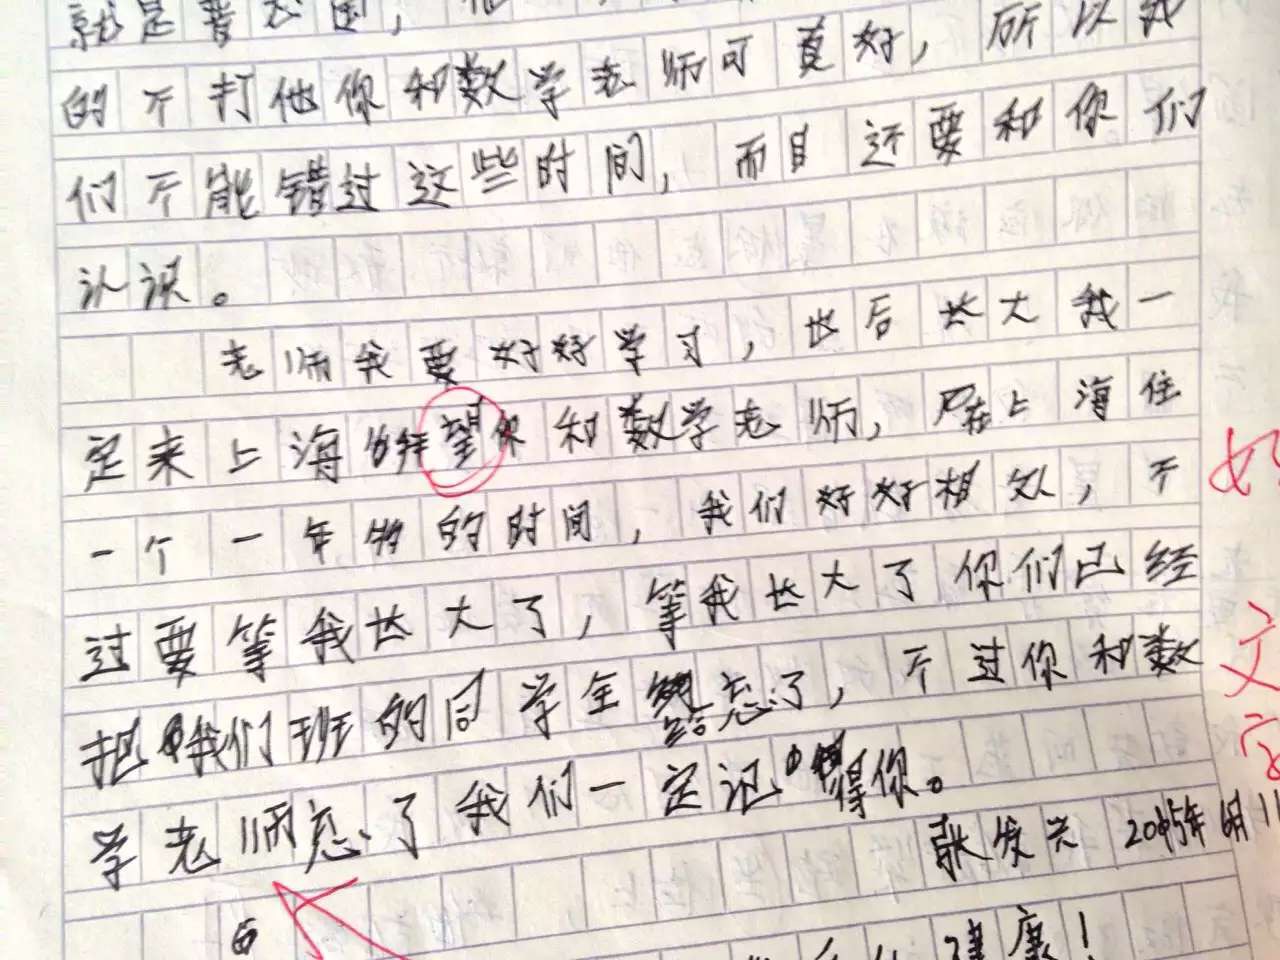 就是
的不打他你和数学老师可真好，所以我
们不能错过这些时间，而且还要和你们
认识。
老师我要好好学习，也后长大我一
定来上海拜望你和数学老师，在上海住
一个一年的时间，我们好好相处，不
过要等我长大了，等我长大了你们已经
把我们班的同学全给忘了，不过你和数
学老师忘了我们一定记得你。
张发兴 2015年6月11
好
文
健康！